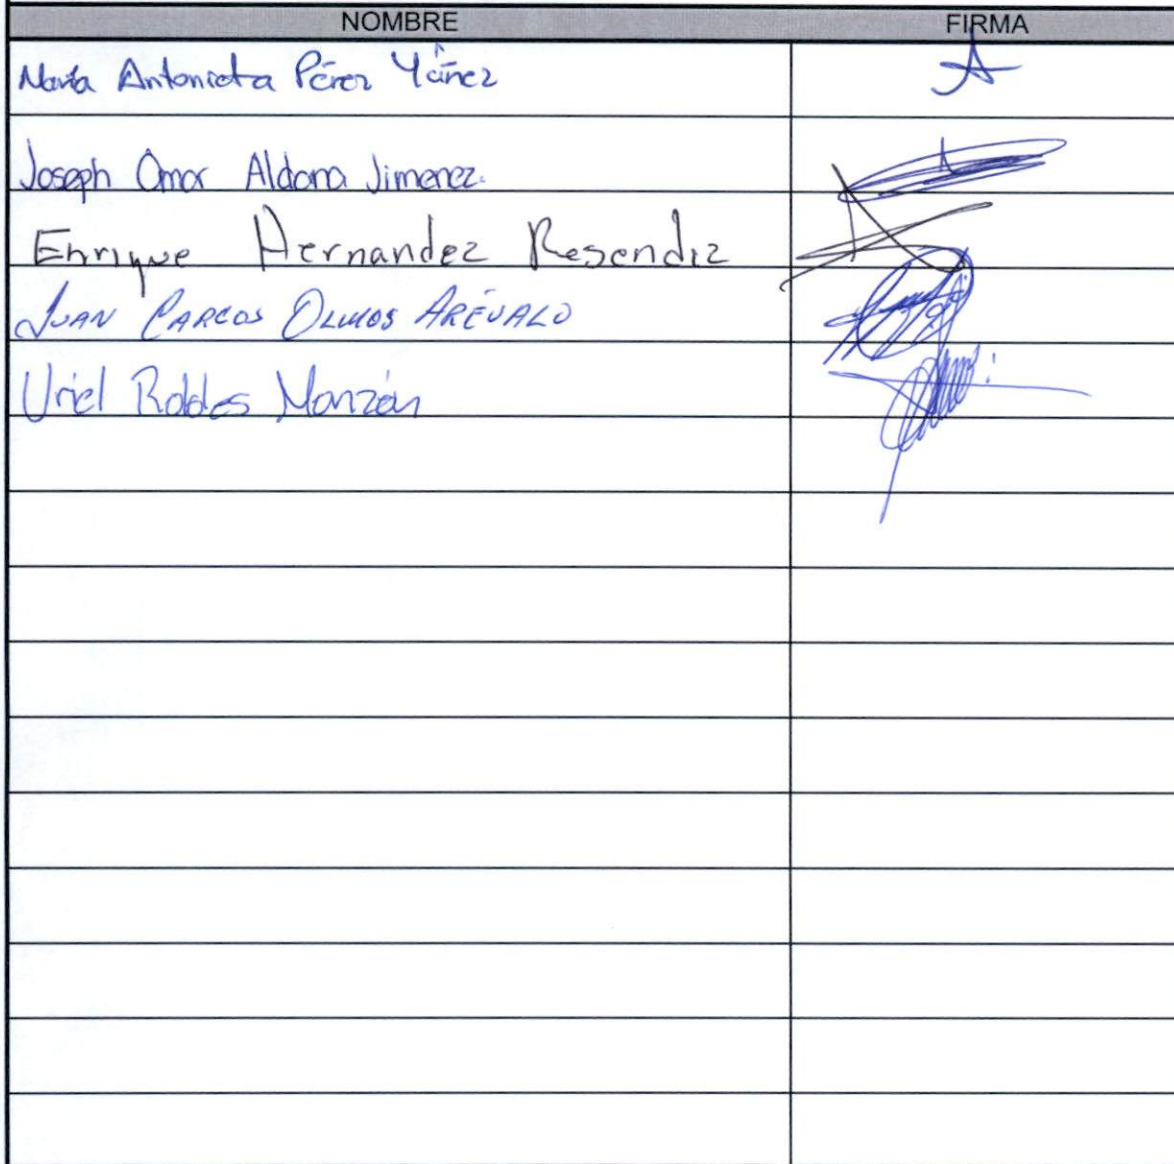 NOMBRE FIRMA
María Antonieta Pérez Yáñez
Joseph Omar Aldana Jimenez.
Enrique Hernandez Resendiz
JUAN CARLOS OLMOS ARÉVALO
Uriel Robles Monzón